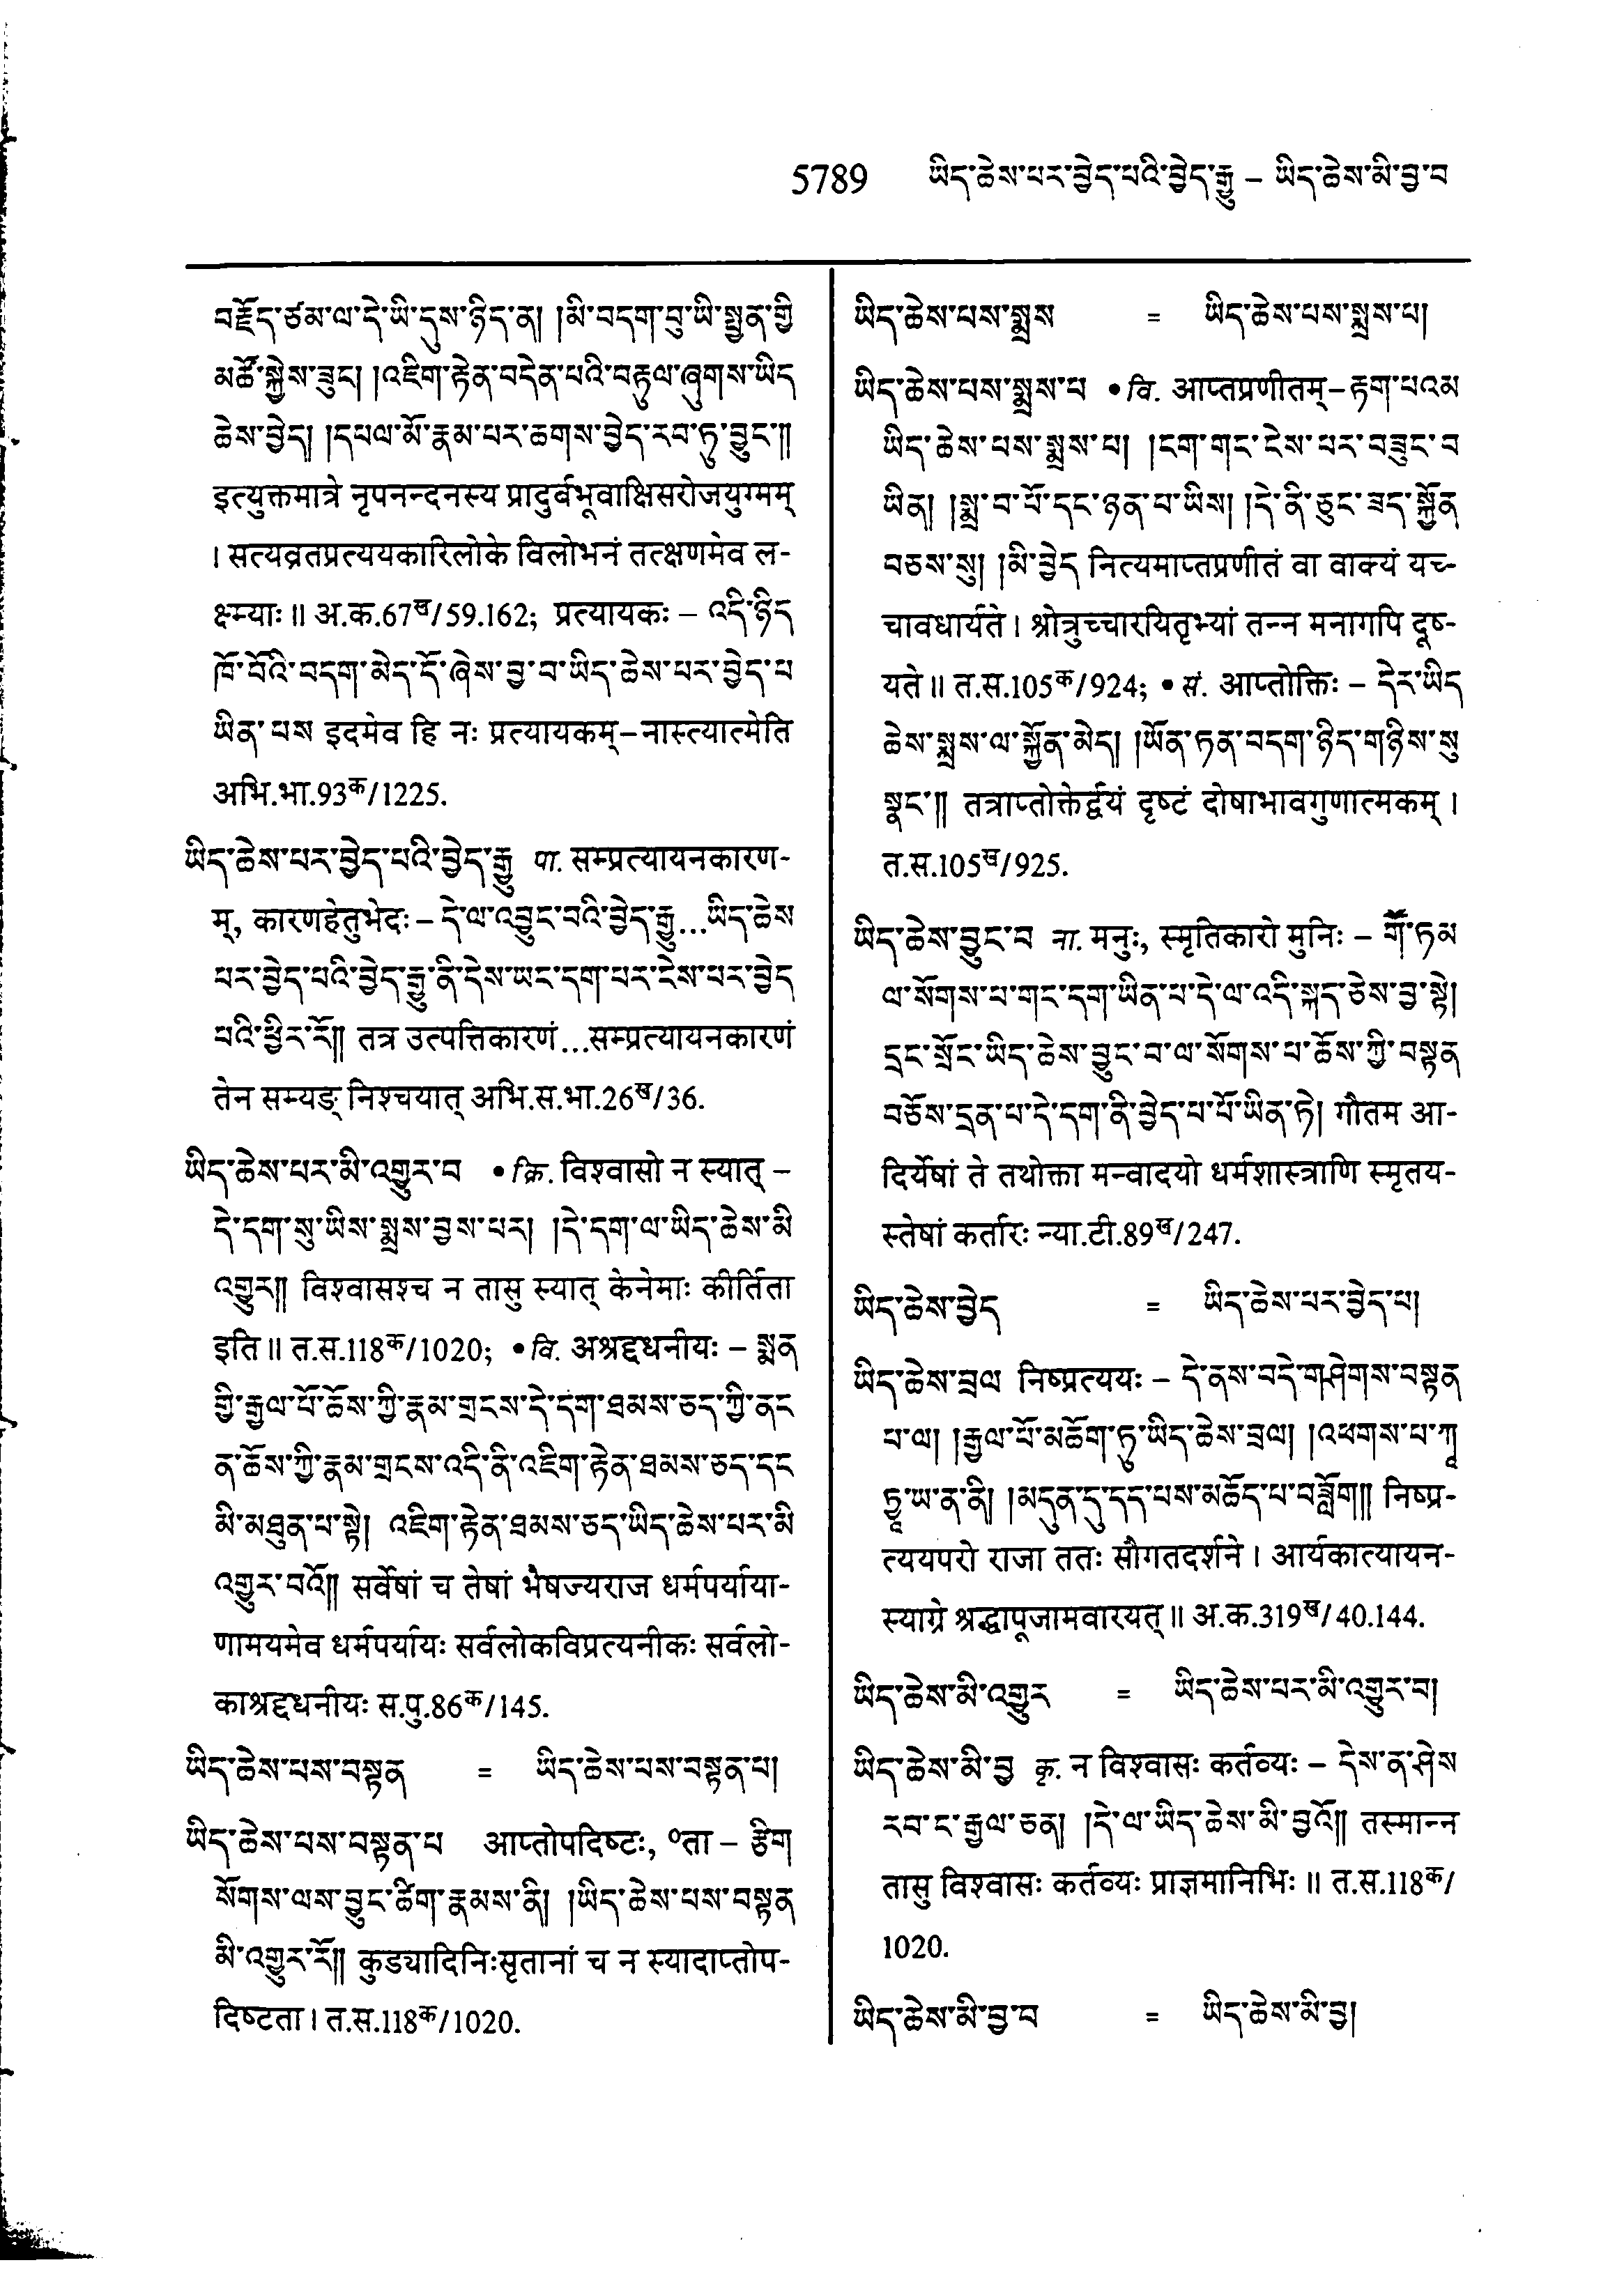 5789 ཡིད་ཆེས་པར་བྱེད་པའི་བྱེད་རྒྱུ – ཡིད་ཆེས་མི་བྱ་བ
བརྗོད་ཙམ་ལ་དེ་ཡི་དུས་ཉིད་ན། །མི་བདག་བུ་ཡི་སྤྱན་གྱི
མཚོ་སྐྱེས་ཟུང། །འཇིག་རྟེན་བདེན་པའི་བརྟུལ་ཞུགས་ཡིད
ཆེས་བྱེད། །དཔལ་མོ་རྣམ་པར་ཆགས་བྱེད་རབ་ཏུ་བྱུང་༎
इत्युक्तमात्रे नृपनन्दनस्य प्रादुर्वभूवाक्षिसरोजयुग्मम्
। सत्यव्रतप्रत्ययकारिलोके विलोभनं तत्क्षणमेव ल-
क्ष्म्याः ॥ अ.क.67ख/59.162; प्रत्यायकः – འདི་ཉིད
ཁོ་བོའི་བདག་མེད་དོ་ཞེས་བྱ་བ་ཡིད་ཆེས་པར་བྱེད་པ
ཡིན་པས इदमेव हि नः प्रत्यायकम्–नास्त्यात्मेति
अभि.भा.93क/1225.
ཡིད་ཆེས་པར་བྱེད་པའི་བྱེད་རྒྱུ पा. सम्प्रत्यायनकारण-
म्, कारणहेतुभेदः – དེ་ལ་འབྱུང་བའི་བྱེད་རྒྱུ...ཡིད་ཆེས
པར་བྱེད་པའི་བྱེད་རྒྱུ་ནི་དེས་ཡང་དག་པར་ངེས་པར་བྱེད
པའི་ཕྱིར་རོ༎ तत्र उत्पत्तिकारणं...सम्प्रत्यायनकारणं
तेन सम्यङ् निश्चयात् अभि.स.भा.26ख/36.
ཡིད་ཆེས་པར་མི་འགྱུར་བ • क्रि. विश्वासो न स्यात् –
དེ་དག་སུ་ཡིས་སྨྲས་བྱས་པར། །དེ་དག་ལ་ཡིད་ཆེས་མི
འགྱུར༎ विश्वासश्च न तासु स्यात् केनेमाः कीर्तिता
इति ॥ त.स.118क/1020; • वि. अश्रद्दधनीयः – སྨན
གྱི་རྒྱལ་པོ་ཆོས་ཀྱི་རྣམ་གྲངས་དེ་དག་ཐམས་ཅད་ཀྱི་ནང
ན་ཆོས་ཀྱི་རྣམ་གྲངས་འདི་ནི་འཇིག་རྟེན་ཐམས་ཅད་དང
མི་མཐུན་པ་སྟེ། འཇིག་རྟེན་ཐམས་ཅད་ཡིད་ཆེས་པར་མི
འགྱུར་བའོ༎ सर्वेषां च तेषां भैषज्यराज धर्मपर्याया-
णामयमेव धर्मपर्यायः सर्वलोकविप्रत्यनीकः सर्वलो-
काश्रद्दधनीयः स.पु.86क/145.
ཡིད་ཆེས་པས་བསྟན = ཡིད་ཆེས་པས་བསྟན་པ།
ཡིད་ཆེས་པས་བསྟན་པ आप्तोपदिष्टः, ०ता – རྩིག
སོགས་ལས་བྱུང་ཚིག་རྣམས་ནི། །ཡིད་ཆེས་པས་བསྟན
མི་འགྱུར་རོ༎ कुड्यादिनिःसृतानां च न स्यादाप्तोप-
दिष्टता । त.स.118क/1020.
ཡིད་ཆེས་པས་སྨྲས = ཡིད་ཆེས་པས་སྨྲས་པ།
ཡིད་ཆེས་པས་སྨྲས་པ • वि. आप्तप्रणीतम्– རྟག་པའམ
ཡིད་ཆེས་པས་སྨྲས་པ། །ངག་གང་ངེས་པར་བཟུང་བ
ཡིན། །སྨྲ་བ་པོ་དང་ཉན་པ་ཡིས། །དེ་ནི་ཅུང་ཟད་སྐྱོན
བཅས་སུ། །མི་བྱེད नित्यमाप्तप्रणीतं वा वाक्यं यच्-
चावधार्यते । श्रोत्रुच्चारयितृभ्यां तन्न मनागपि दूष-
यते ॥ त.स.105क/924; • सं. आप्तोक्तिः – དེར་ཡིད
ཆེས་སྨྲས་ལ་སྐྱོན་མེད། །ཡོན་ཏན་བདག་ཉིད་གཉིས་སུ
སྣང་༎ तत्राप्तोक्तेर्द्वयं दृष्टं दोषाभावगुणात्मकम् ।
त.स.105ख/925.
ཡིད་ཆེས་བྱུང་བ ना. मनुः, स्मृतिकारो मुनिः – གོཽ་ཏམ
ལ་སོགས་པ་གང་དག་ཡིན་པ་དེ་ལ་འདི་སྐད་ཅེས་བྱ་སྟེ།
དྲང་སྲོང་ཡིད་ཆེས་བྱུང་བ་ལ་སོགས་པ་ཆོས་ཀྱི་བསྟན
བཅོས་དྲན་པ་དེ་དག་ནི་བྱེད་པ་པོ་ཡིན་ཏེ། गौतम आ-
दिर्येषां ते तथोक्ता मन्वादयो धर्मशास्त्राणि स्मृतय-
स्तेषां कर्तारः न्या.टी.89ख/247.
ཡིད་ཆེས་བྱེད = ཡིད་ཆེས་པར་བྱེད་པ།
ཡིད་ཆེས་བྲལ निष्प्रत्ययः – དེ་ནས་བདེ་གཤེགས་བསྟན
པ་ལ། །རྒྱལ་པོ་མཆོག་ཏུ་ཡིད་ཆེས་བྲལ། །འཕགས་པ་ཀཱ
ཏྱཱ་ཡ་ན་ནི། །མདུན་དུ་དད་པས་མཆོད་པ་བཟློག༎ निष्प्र-
त्ययपरो राजा ततः सौगतदर्शने । आर्यकात्यायन-
स्याग्रे श्रद्धापूजामवारयत् ॥ अ.क.319ख/40.144.
ཡིད་ཆེས་མི་འགྱུར = ཡིད་ཆེས་པར་མི་འགྱུར་བ།
ཡིད་ཆེས་མི་བྱ कृ. न विश्वासः कर्तव्यः – དེས་ན་ཤེས
རབ་ང་རྒྱལ་ཅན། །དེ་ལ་ཡིད་ཆེས་མི་བྱའོ༎ तस्मान्न
तासु विश्वासः कर्तव्यः प्राज्ञमानिभिः ॥ त.स.118क/
1020.
ཡིད་ཆེས་མི་བྱ་བ = ཡིད་ཆེས་མི་བྱ།